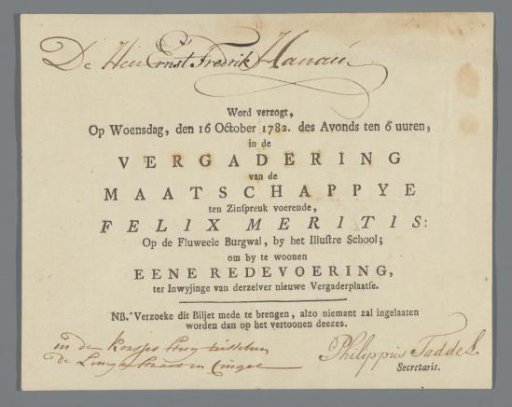 De Heer Ernst Fredrik Hanau
Word verzogt,
Op Woensdag, den 16 October 1782. des Avonds ten 6 uuren,
in de
VERGADERING
van de
MAATSCHAPPYE
ten Zinſpreuk voerende,
FELIX MERITIS:
Op de Fluweele Burgwal, by het Illuſtre School;
om by te woonen
EENE REDEVOERING,
ter Inwyjinge van derzelver nieuwe Vergaderplaatſe.
NB. Verzoeke dit Biljet mede te brengen, alzo niemant zal ingelaaten
worden dan op het vertoonen deezes.
in de
de en Cingel
Philippus Taddel
Secretaris.